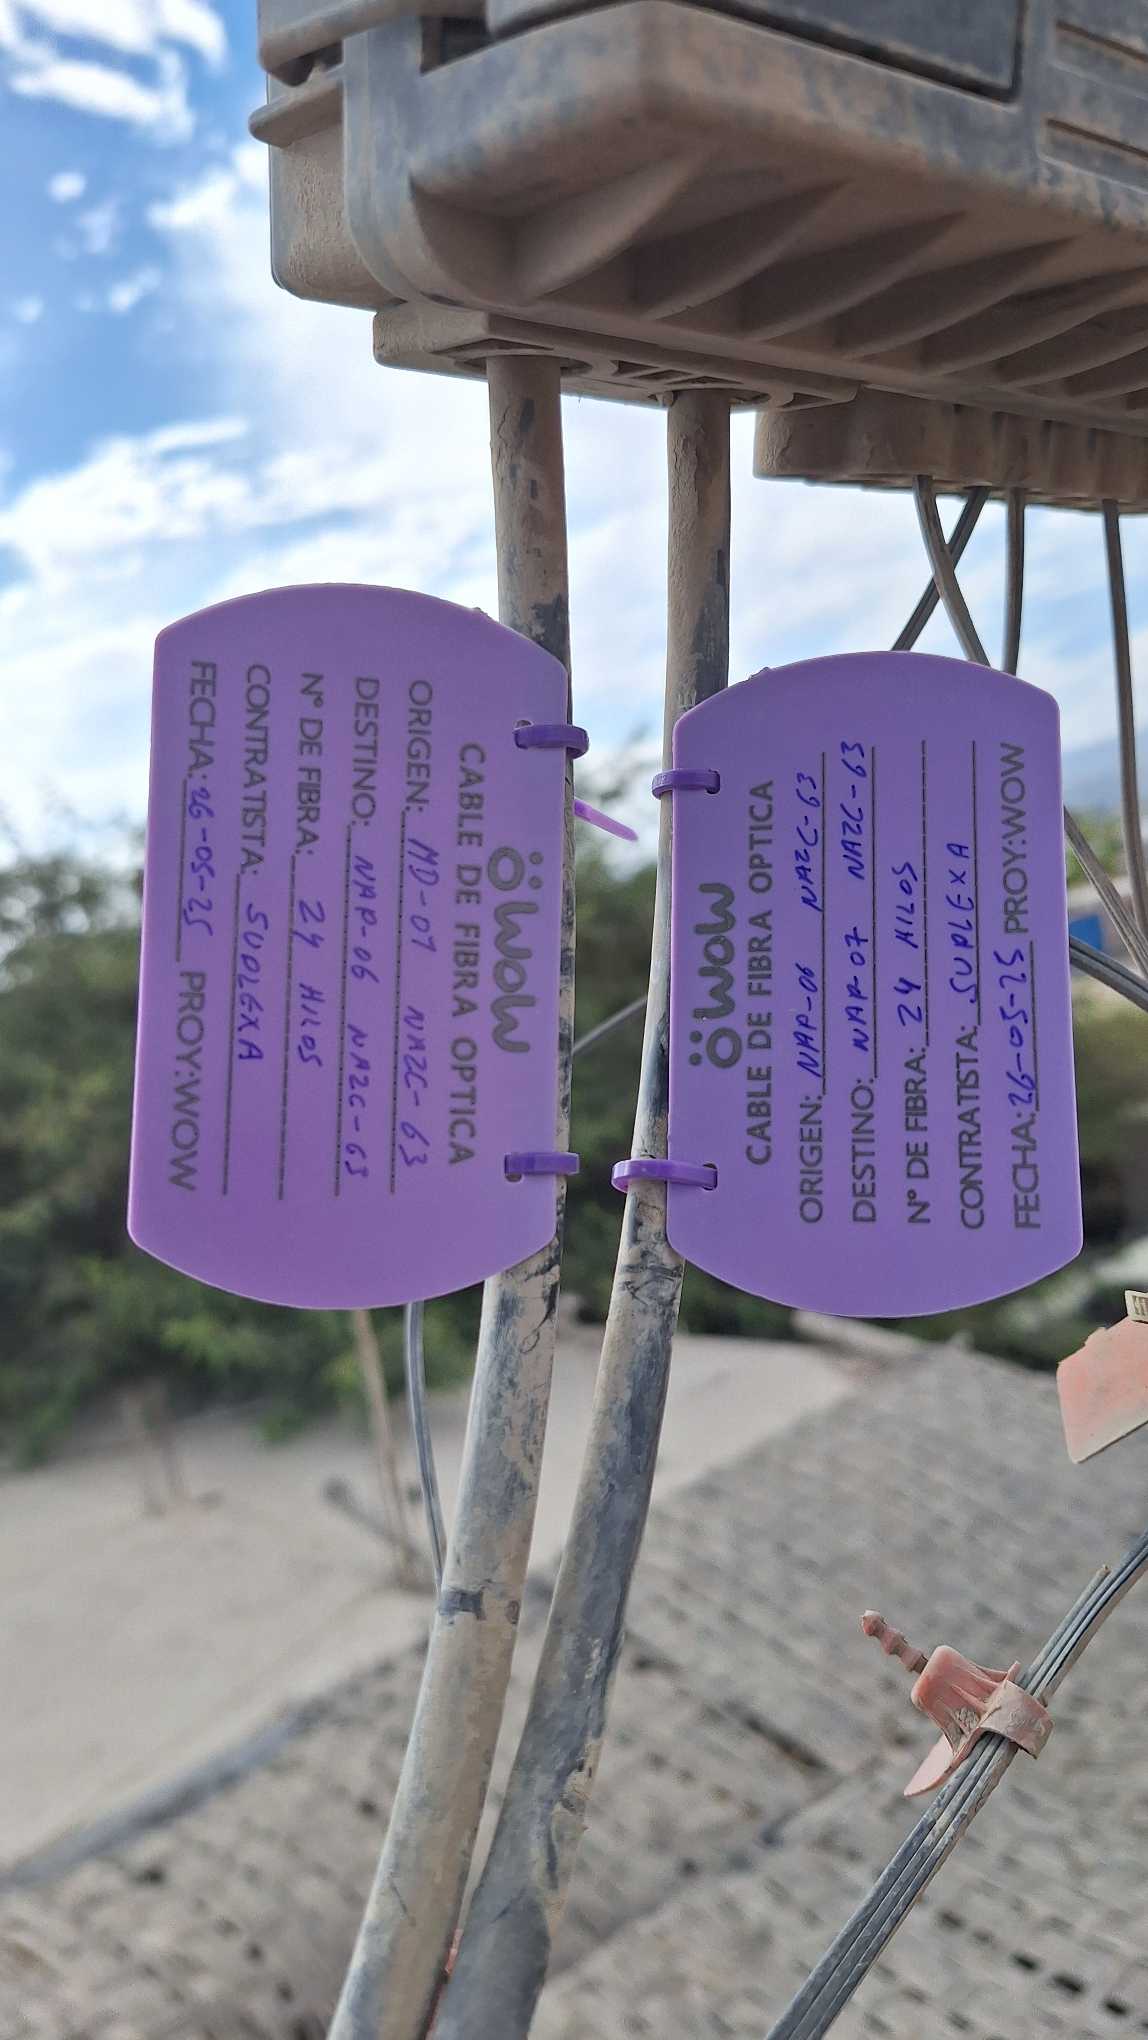 wow
CABLE DE FIBRA OPTICA
ORIGEN: MD-07 NAZC-63
DESTINO: NAP-06 NAZC-63
N° DE FIBRA: 24 HILOS
CONTRATISTA: SUPLEXA
FECHA: 26-05-25 PROY:WOW
wow
CABLE DE FIBRA OPTICA
ORIGEN: NAP-06 NAZC-63
DESTINO: NAP-07 NAZC-63
N° DE FIBRA: 24 HILOS
CONTRATISTA: SUPLEXA
FECHA: 26-05-25 PROY:WOW